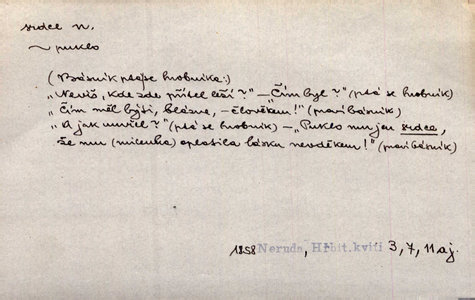 srdce n.
~ puklo
(Básník ptá se hrobníka:)
„Nevíš, kde zde přítel leží?" – „Čím byl?" (ptá se hrobník)
„Čím měl býti, blázne, – člověkem!" (praví básník)
„A jak umřel?" (ptá se hrobník) – „Puklo mu jen srdce,
že mu (milenka) oplatila lásku nevděkem!" (praví básník)
1858 Neruda, Hřbit. kvítí 3, 7, 11 aj.